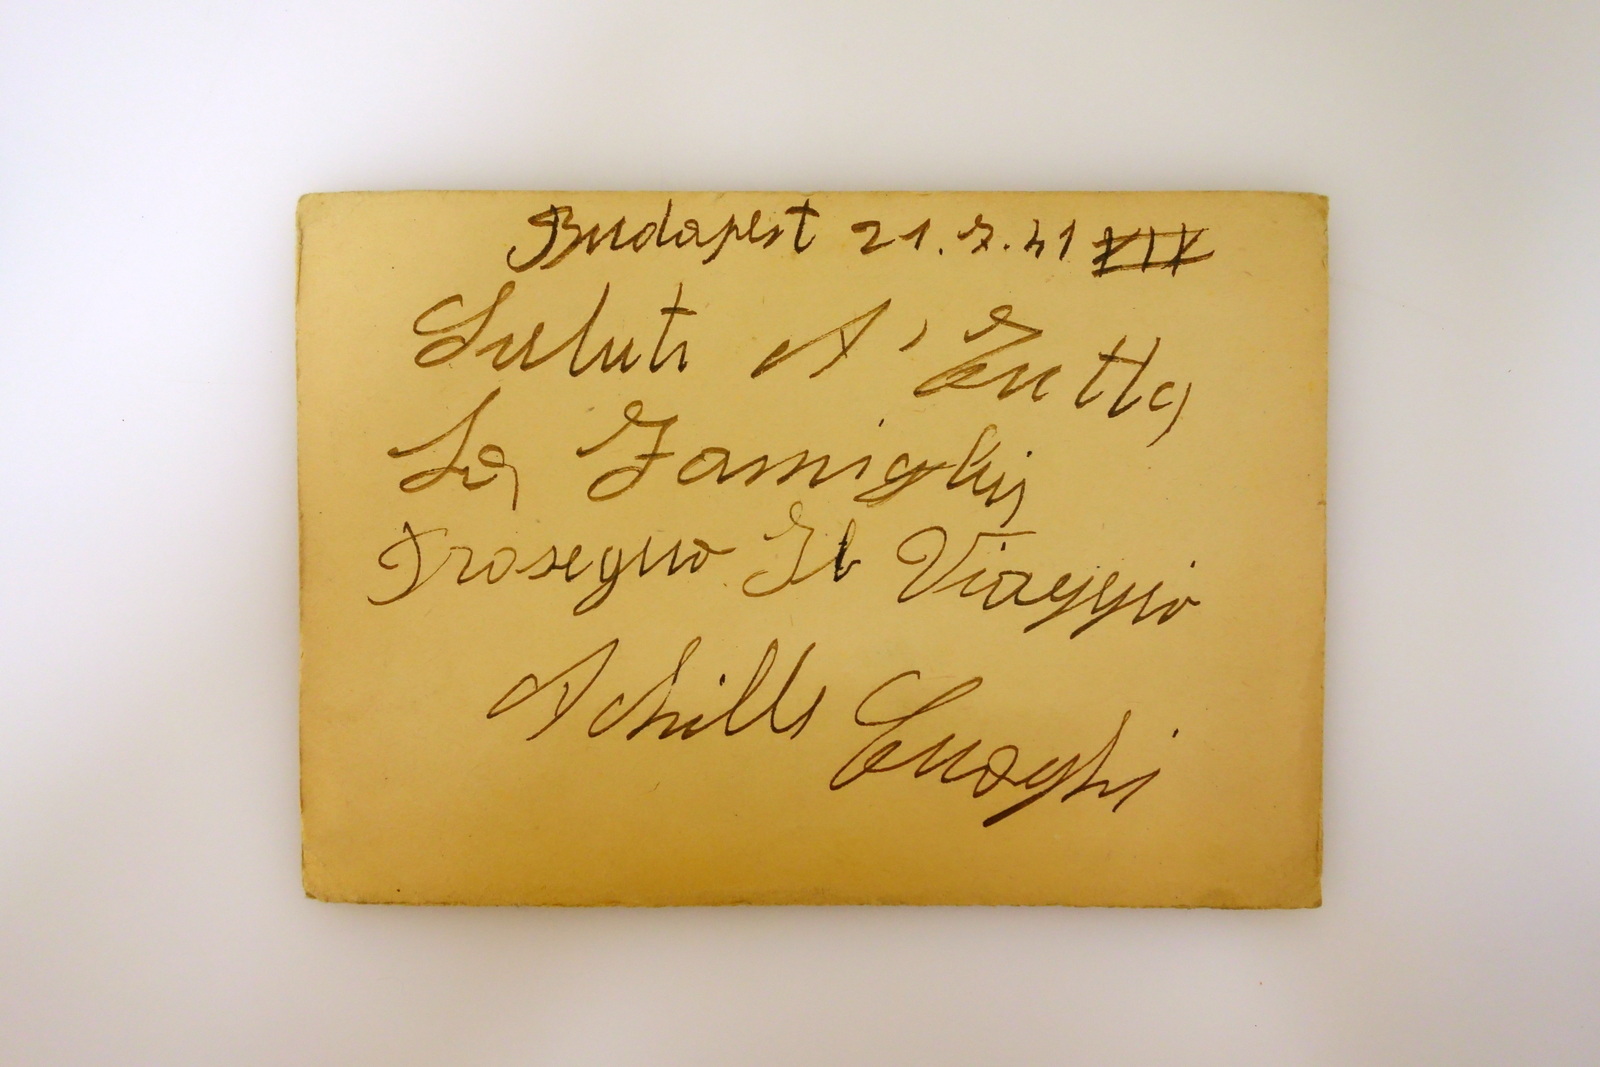 Budapest 21.7.41 XIX
Saluti A' Tutta
La Famiglia
Proseguo Il Viaggio
Achille